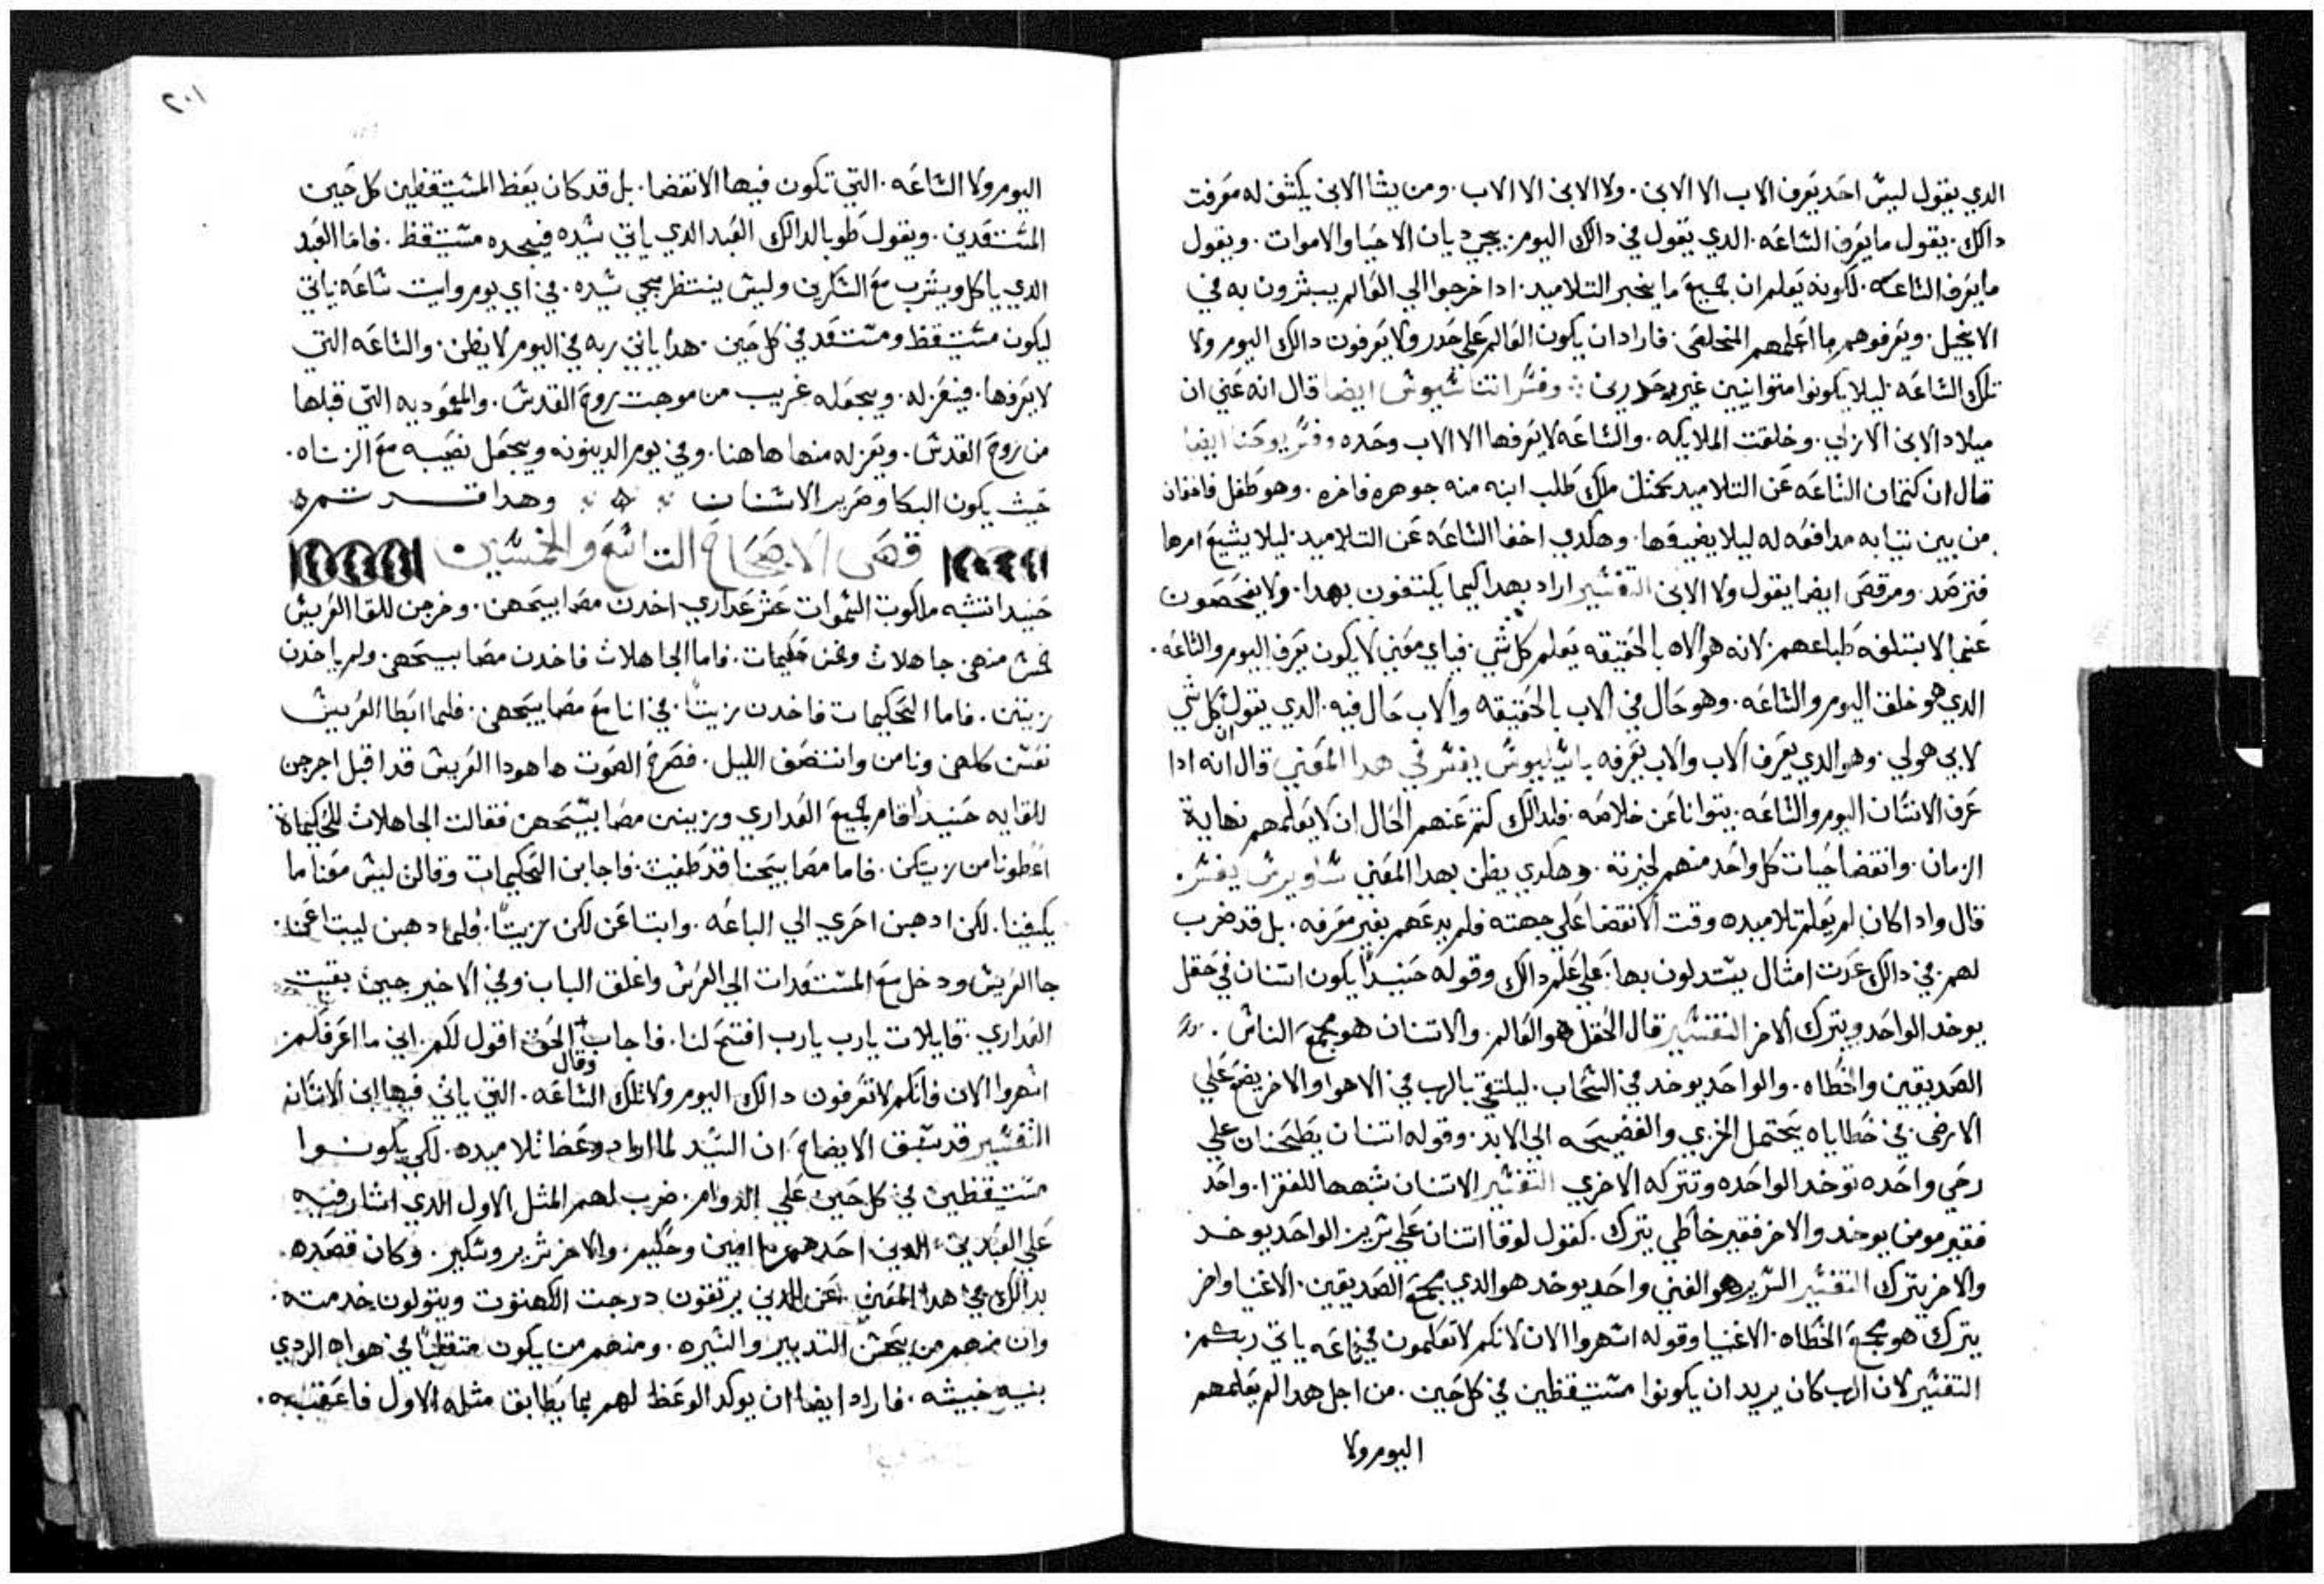 الدي يقول ليس احد يعرف الاب الا الابن. ولا الابن الا الاب. ومن يشا الابن يكشف له معرفت
دالك. يقول ما يعرف الساعه. الدي يقول في دالك اليوم. يجي ديان الاحيا والاموات. ويقول
ما يعرف الساعه. لكونه يعلم ان جميع ما يخبر التلاميد. ادا خرجوا الي العالم يبشرون به في
الانجيل. ويعرفوهم ما اعلمهم المخلص. فاراد ان يكون العالم علي حدر ولا يعرفون دالك اليوم ولا
تلك الساعه. ليلا يكونوا متوانيين غير حدرين. وفسر اتناسيوس ايضا قال انه عني ان
ميلاد الابن الازلي. وخلقت الملايكه. والساعه لا يعرفها الا الاب وحده وفسر يوحنا ايضا
قال ان كتمان الساعه عن التلاميد كمثل ملك طلب ابنه منه جوهره فاخره. وهو طفل فاخفاه
من بين تيابه مدافعه له ليلا يضيعها. وهكدي اخفا الساعه عن التلاميد. ليلا يشيع امرها
فترصد. ومرقص ايضا يقول ولا الابن التفسير اراد بهدا كيما يكتفون بهدا. ولا يفحصون
عنما لا بتلفه طباعهم. لانه هو الاه بالحقيقه يعلم كل شي. فباي معني لا يكون يعرف اليوم والساعه.
الدي هو خلق اليوم والساعه. وهو حال في الاب بالحقيقه والاب حال فيه. الدي يقول ان كل شي
لابي هو لي. وهو الدي يعرف الاب والاب يعرفه باسيليوس يفسر في هدا المعني قال انه ادا
عرف الانسان اليوم والساعه. يتوانا عن خلاصه. فلدالك كتم عنهم الحال ان لا يعلمهم نهاية
الزمان. وانقضا حيات كل واحد منهم لخيرته. وهكدي يظن بهدا المعني ساويرس يفسر.
قال وادا كان لم يعلم تلاميده وقت الانقضا علي جهته فلم يدعهم بغير معرفه. بل قد ضرب
لهم. في دالك عدت امتال يستدلون بها. علي علم دالك وقوله حنيدًا يكون اتنان في حقل
يوخد الواحد ويترك الاخر التفسير قال الحقل هو العالم. والاتنان هو جمع الناس.
الصديقين والخطاه. والواحد يوخد في السحاب. ليلتقي بالرب في الاهوا والاخر يضع علي
الارض. في خطاياه يحتمل الخزي والفضيحه الي الابد. وقوله اتنان يطحنان علي
رحي واحده توخد الواحده وتترك الاخري التفسير الاتنان شبهها للفقرا. واحد
فقير مومن يوخد والاخر فقير خاطي يترك. كقول لوقا اتنان علي سرير الواحد يوخد
والاخر يترك التفسير السرير هو الغني واحد يوخد هو الدي يجمع الصديقين. الاغنيا واخر
يترك هو جمع الخطاه. الاغنيا وقوله اسهروا الان لانكم لا تعلمون في اي ساعه ياتي ربكم.
التفسير لان الرب كان يريد ان يكونوا مستيقظين في كل حين. من اجل هدا لم يعلمهم
اليوم ولا
٢٠١
اليوم ولا الساعه. التي تكون فيها الانقضا. بل قد كان يعظ المستيقظين كل حين
المستعدين. ويقول طوبا لدالك العبد الدي ياتي سيده فيجده مستيقظ. فاما العبد
الدي ياكل ويشرب مع السكرين وليس ينتظر مجي سيده. في اي يوم وايت ساعه ياتي
ليكون مستيقظ ومستعد في كل حين. هدا ياتي ربه في اليوم لا يظن. والساعه التي
لا يعرفها. فيعزله. ويجعله غريب من موهبت روح القدس. والمعموديه التي قبلها
من روح القدس. ويعزله منها هاهنا. وفي يوم الدينونه ويجعل نصيبه مع الزناه.
حيث يكون البكا وصرير الاسنان وهدا قد تمره
قصص الاصحاح التاسع والخمسين
حنيدا تشبه ملكوت السموات عشر عداري اخدن مصابيحهن. وخرجن للقا العريس
خمس منهن جاهلات وخمس حكيمات. فاما الجاهلات فاخدن مصابيحهن ولم ياخدن
زيتن. فاما الحكيمات فاخدن زيتًا. في انا مع مصابيحهن. فلما ابطا العريس
نعسن كلهن ونامن وانتصف الليل. فصرخ الصوت ها هودا العريس قد اقبل اخرجن
للقايه حنيدًا قام جميع العداري وزينن مصابيحهن فقالت الجاهلات للحكيماة
اعطونا من زيتكن. فاما مصابيحنا قد طفيت. فاجابن الحكيمات وقالن ليس معنا ما
يكفينا. لكن ادهبن احري الي الباعه. وابتاعن لكن زيتًا. فلما دهبن ليبتاعن.
جا العريس ودخل مع المستعدات الي العرس واغلق الباب وفي الاخير جين بقيت
العداري. قايلات يارب يارب افتح لنا. فاجاب وقال الحق اقول لكم. اني ما اعرفكم
اسهروا الان فانكم لا تعرفون دالك اليوم ولا تلك الساعه. التي ياتي فيها ابن الانسان
التفسير قد سبق الايضاح ان السيد لما اراد وعظ تلاميده. لكي يكونوا
مستيقظين في كل حين علي الدوام. ضرب لهم المثل الاول الدي اشار فيه
علي العبدين. الدين احدهم امين وحكيم. والاخر شرير وسكير. وكان قصده
بدالك في هدا المعني عن الدين يرتقون درجت الكهنوت ويتولون خدمته.
وان منهم من يحسن التدبير والسيره. ومنهم من يكون متقلبًا في هواه الردي
بنيه خبيثه. فاراد ايضا ان يوكد الوعظ لهم بما يطابق مثله الاول فاعقبه.